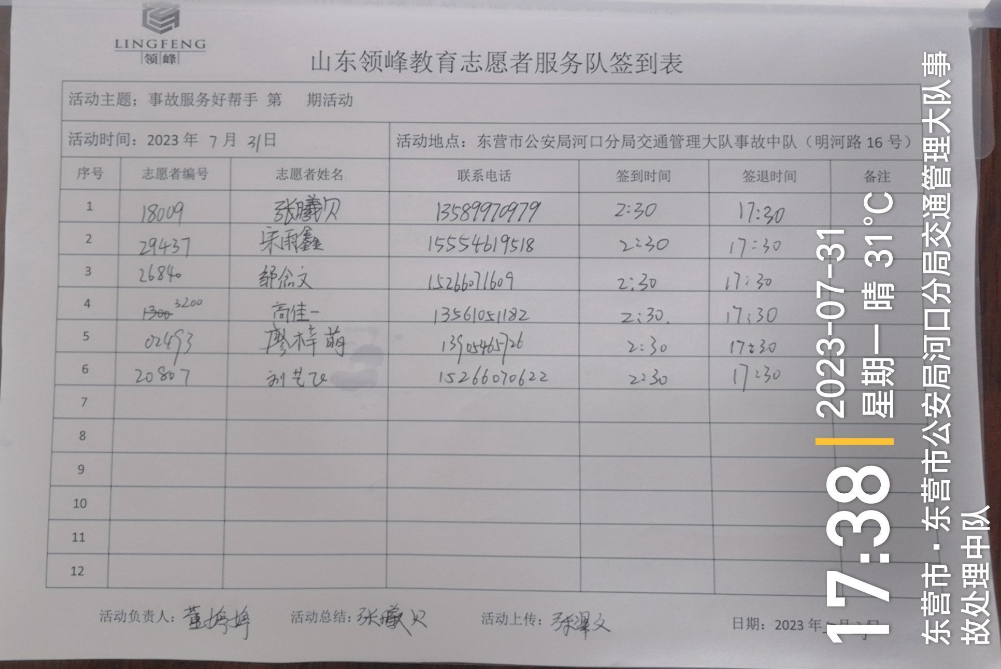 LINGFENG
领峰
山东领峰教育志愿者服务队签到表
活动主题：事故服务好帮手 第 期活动
活动时间：2023 年 7 月 31日 活动地点：东营市公安局河口分局交通管理大队事故中队（明河路 16 号）
序号 志愿者编号 志愿者姓名 联系电话 签到时间 签退时间 备注
1 18009 张曦贝 13589970979 2:30 17:30
2 29437 宋雨鑫 15554619518 2:30 17:30
3 26840 邹念文 15266071609 2:30 17:30
4 3200 高佳一 13561051182 2:30 17:30
5 02493 廖梓萌 2:30 17:30
6 20807 刘艺飞 15266070622 2:30 17:30
7
8
9
10
11
12
活动负责人：董婷婷 活动总结：张曦贝 活动上传：张泽文 日期：2023 年
17:38
2023-07-31
星期一 晴 31℃
东营市·东营市公安局河口分局交通管理大队事
故处理中队